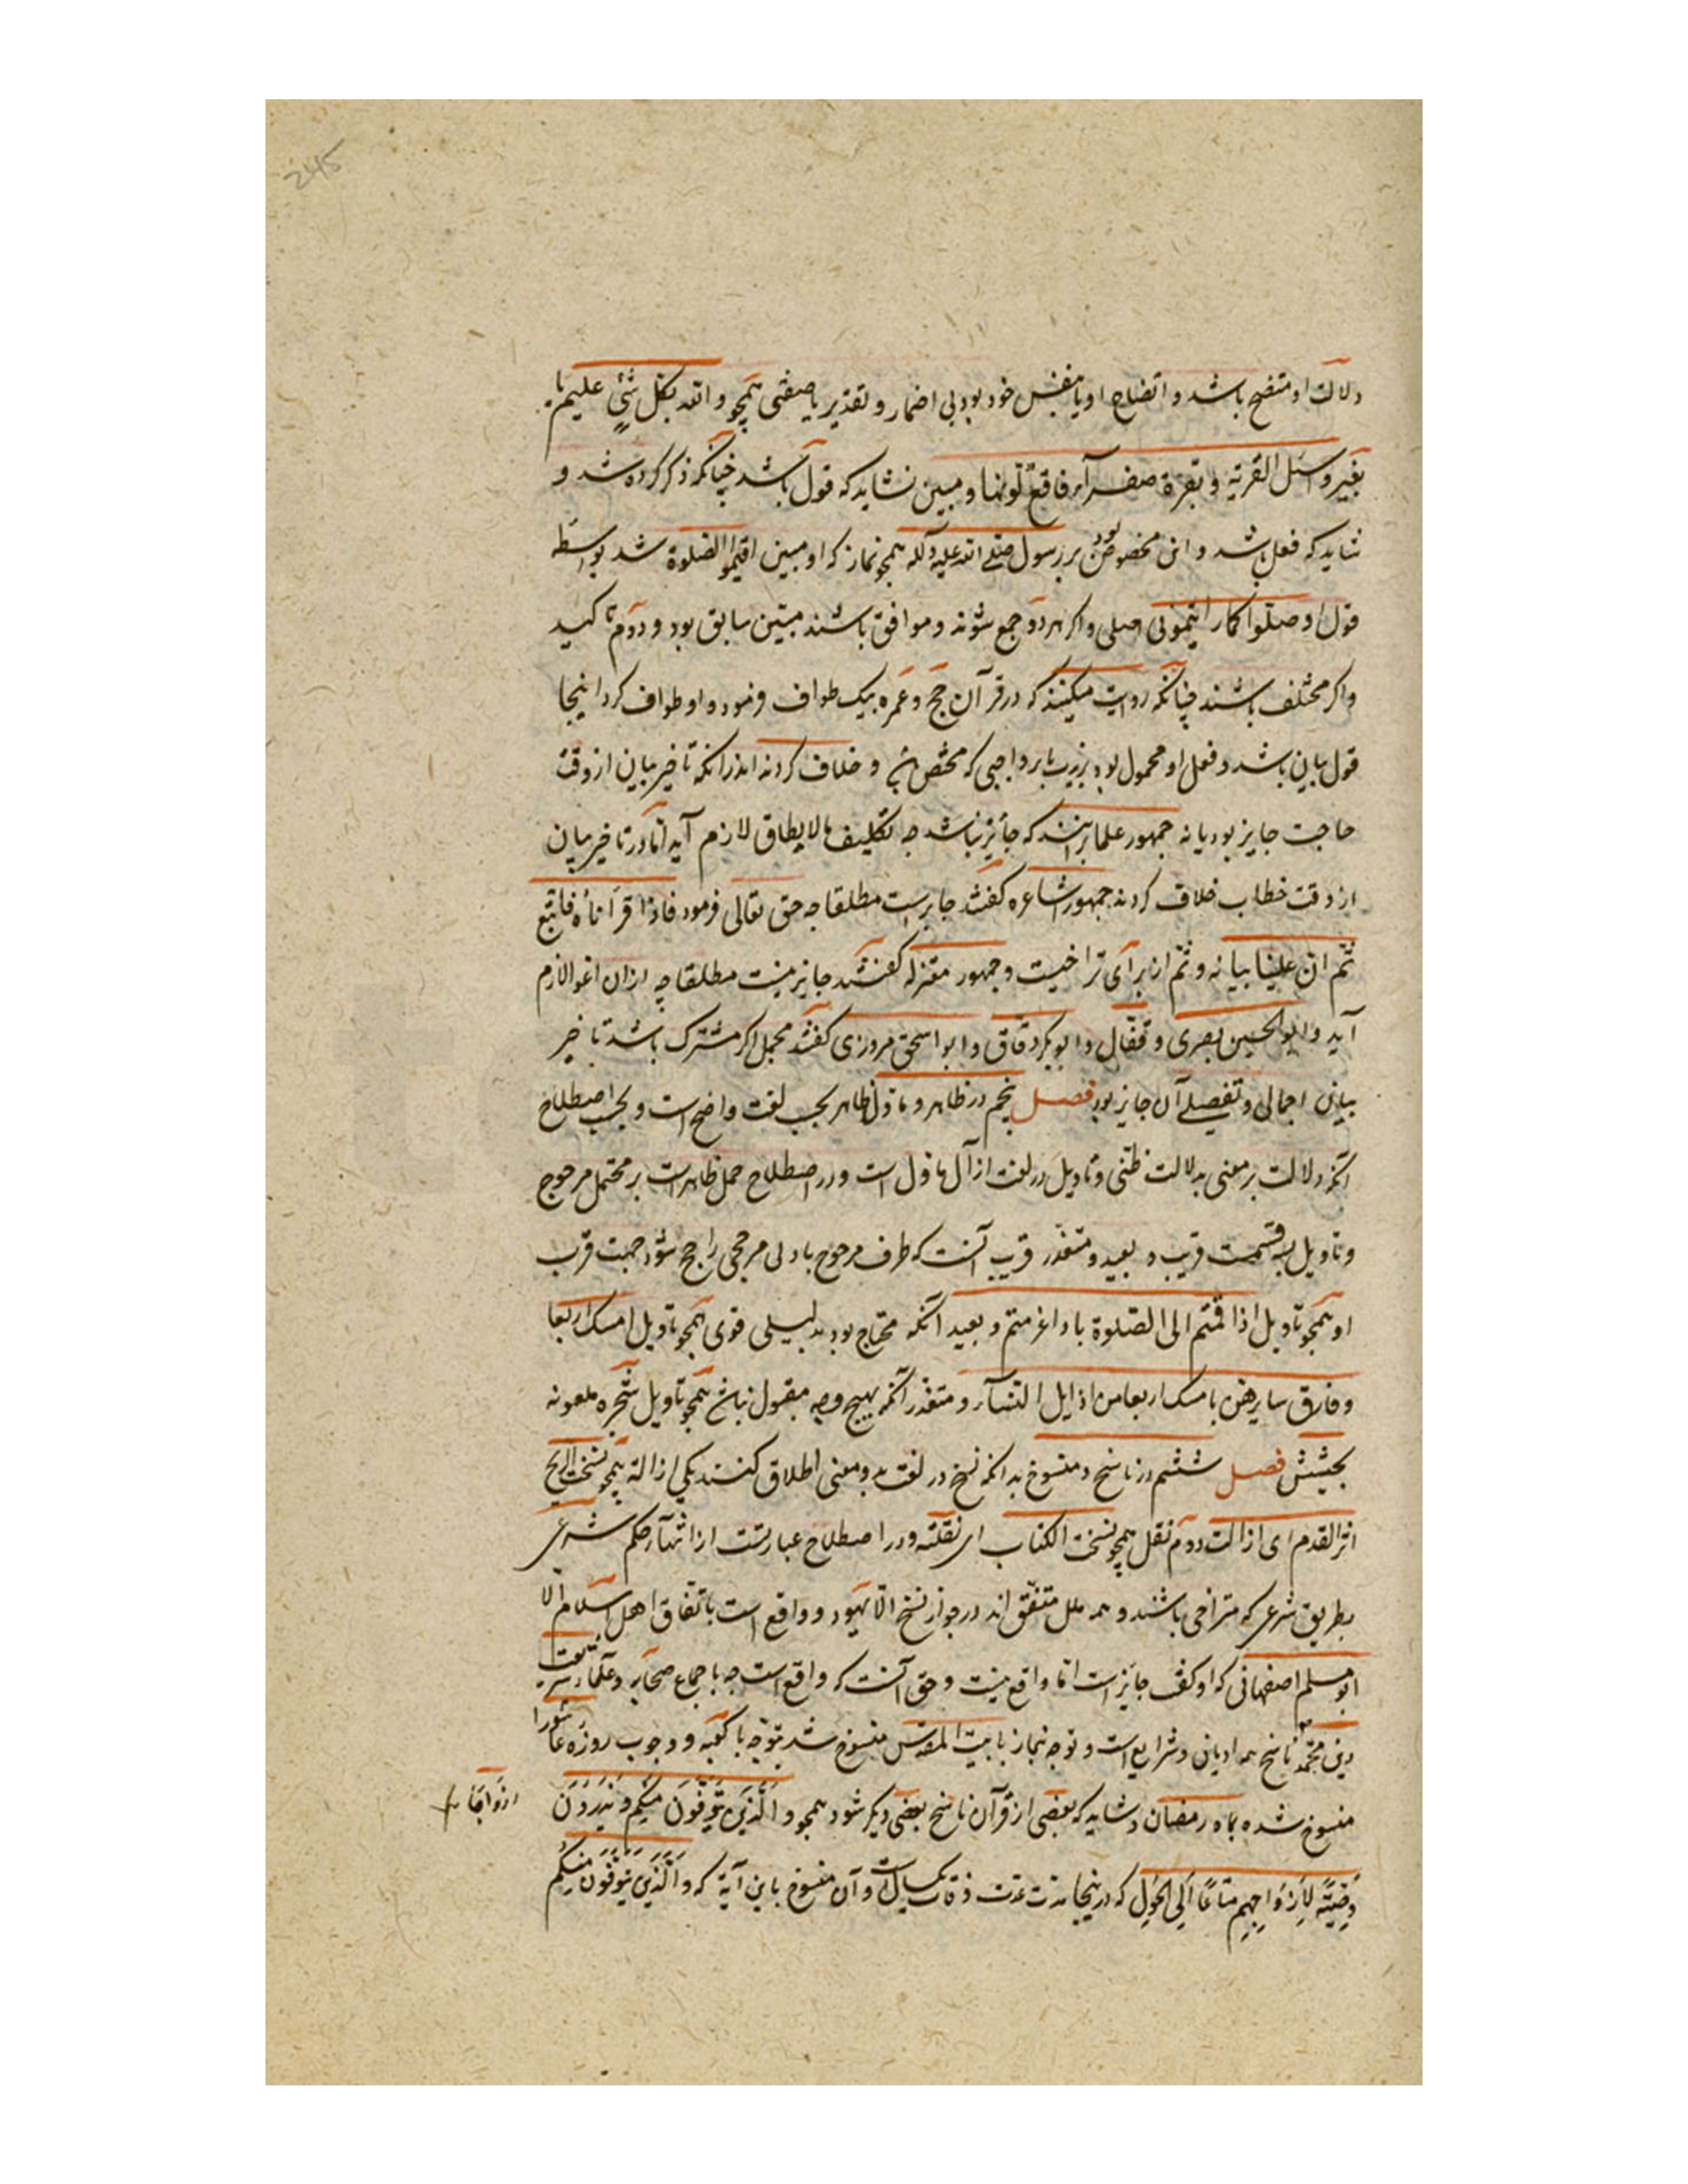 دلالت او متضح باشد و اتضاح او یا بنفس خود بود بی اضمار و تقدیر یا صفتی همچو و الله بکل شئ علیم یا
بغیر و اسئل القریة و بقرة صفرآء فاقع لونها و مبین نشاید که قول باشد چنانکه ذکر کرده شد و
شاید که فعل باشد و این مخصوص بود بر رسول صلی الله علیه و آله همچو نماز که او مبین اقیموا الصلوة شد بواسطه
قول او صلوا کما رایتمونی اصلی و اگر هر دو جمع شوند و موافق باشند مبین سابق بود و دوم تاکید
و اگر مختلف باشند چنانکه روایت میکنند که در قرآن حج و عمره بیک طواف فرمود و او طواف کرد اینجا
قول بیان باشد و فعل او محمول بود بر ندب یا بر واجبی که مختص و خلاف کردند اندر انکه تاخیر بیان از وقت
حاجت جایز بود یا نه جمهور علما برانند که جائز نباشد چه تکلیف ما لا یطاق لازم آید اما در تاخیر بیان
از وقت خطاب خلاف کردند جمهور اشاعره گفتند جایز است مطلقا چه حق تعالی فرمود فاذا قرأناه فاتبع
ثم ان علینا بیانه و ثم از برای تراخیست و جمهور معتزله گفتند جایز نیست مطلقا چه ازان اغوا لازم
آید و ابو الحسین بصری و قفال و ابو بکر دقاق و ابو اسحق مروزی گفتند مجمل اگر مشترک باشد تاخیر
بیان اجمالی و تفصیلی آن جایز بود فصل پنجم در ظاهر و ماول ظاهر بحسب لغت واضح است و بحسب اصطلاح
آنکه دلالت بر معنی بدلالت ظنی و تاویل در لغت از آل یاول است و در اصطلاح حمل ظاهر است بر محتمل مرجوح
و تاویل بسه قسمت قریب و بعید و متعذر قریب آنست که طرف مرجوح بادنی مرجحی راجح شود جهت قرب
او همچو تاویل اذا قمتم الی الصلوة باذا عزمتم و بعید آنکه محتاج بود بدلیلی قوی همچو تاویل امسک اربعا
و فارق سایرهن بامسک اربعا من اوایل النسآء و متعذر آنکه بهیچ وجه مقبول نباشد همچو تاویل شجره ملعونه
فصل ششم در ناسخ و منسوخ بدانکه نسخ در لغت بدو معنی اطلاق کنند یکی ازاله همچو نسخت الریح
اثر القدم ای ازالت دوم نقل همچو نسخت الکتاب ای نقلته و در اصطلاح عبارتست از انتهآء حکم شرعی
بطریق شرعی که متراخی باشند و همه ملل متفق اند در جواز نسخ الا یهود و واقع است باتفاق اهل اسلام الا
ابو مسلم اصفهانی که او گفت جایز است اما واقع نیست و حق آنست که واقع است چه باجماع صحابه و علماء شریعت
دین محمد ناسخ همه ادیان و شرایع است و توجه بنماز با بیت المقدس منسوخ شد بتوجه با کعبه و وجوب روزه عاشورا
منسوخ شده بماه رمضان و شاید که بعضی از قرآن ناسخ بعضی دیگر شود همچو و الَّذِینَ یُتَوَفَّوْنَ مِنْکُمْ وَ یَذَرُونَ
ازواجا
وَصِیَّةً لِأَزْوَاجِهِمْ مَتَاعًا إِلَی الْحَوْلِ که در اینجا مدت عدت وفات یکسال است و آن منسوخ باین آیة که وَ الَّذِینَ یُتَوَفَّوْنَ مِنْکُمْ